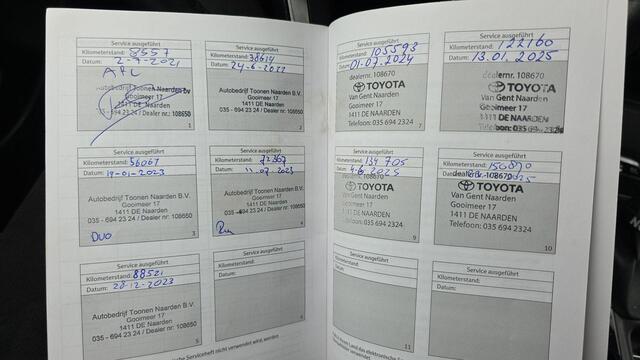 Service ausgeführt
Kilometerstand: 8557
Datum: 2-7-2021
Autobedrijf Toonen Naarden bv
Gooimeer 17
1411 DE Naarden
035 - 694 23 24 / Dealer nr.: 108650
1
Service ausgeführt
Kilometerstand: 38614
Datum: 24-6-2022
Autobedrijf Toonen Naarden B.V.
Gooimeer 17
1411 DE Naarden
035 - 694 23 24 / Dealer nr.: 108650
2
Service ausgeführt
Kilometerstand: 56061
Datum: 19-01-2023
Autobedrijf Toonen Naarden B.V.
Gooimeer 17
1411 DE Naarden
035 - 694 23 24 / Dealer nr.: 108650
DUO
3
Service ausgeführt
Kilometerstand: 72367
Datum: 11-07-2023
Autobedrijf Toonen Naarden B.V.
Gooimeer 17
1411 DE Naarden
035 - 694 23 24 / Dealer nr: 108650
4
Service ausgeführt
Kilometerstand: 88521
Datum: 28-12-2023
Autobedrijf Toonen Naarden B.V.
Gooimeer 17
1411 DE Naarden
035 - 694 23 24 / Dealer nr: 108650
5
Service ausgeführt
Kilometerstand:
Datum:
6
Serviceheft nicht verwendet wird, werden
Service ausgeführt
Kilometerstand: 105593
Datum: 01-07-2024
dealernr. 108670
TOYOTA
Van Gent Naarden
Gooimeer 17
1411 DE NAARDEN
Telefoon: 035 694 2324
Service ausgeführt
Kilometerstand: 122160
Datum: 13.01.2025
dealernr. 108670
TOYOTA
Van Gent Naarden
Gooimeer 17
Service ausgeführt
Kilometerstand: 134705
Datum: 4-6-2025
TOYOTA
Van Gent Naarden
Gooimeer 17
1411 DE NAARDEN
Telefoon: 035 694 2324
9
Service ausgeführt
Kilometerstand:
Datum:
dealernr. 108670
TOYOTA
Van Gent Naarden
Gooimeer 17
1411 DE NAARDEN
Telefoon: 035 694 2324
10
Service ausgeführt
Kilometerstand:
Datum:
11
Service ausgeführt
Kilometerstand:
Datum:
Land das elektronische